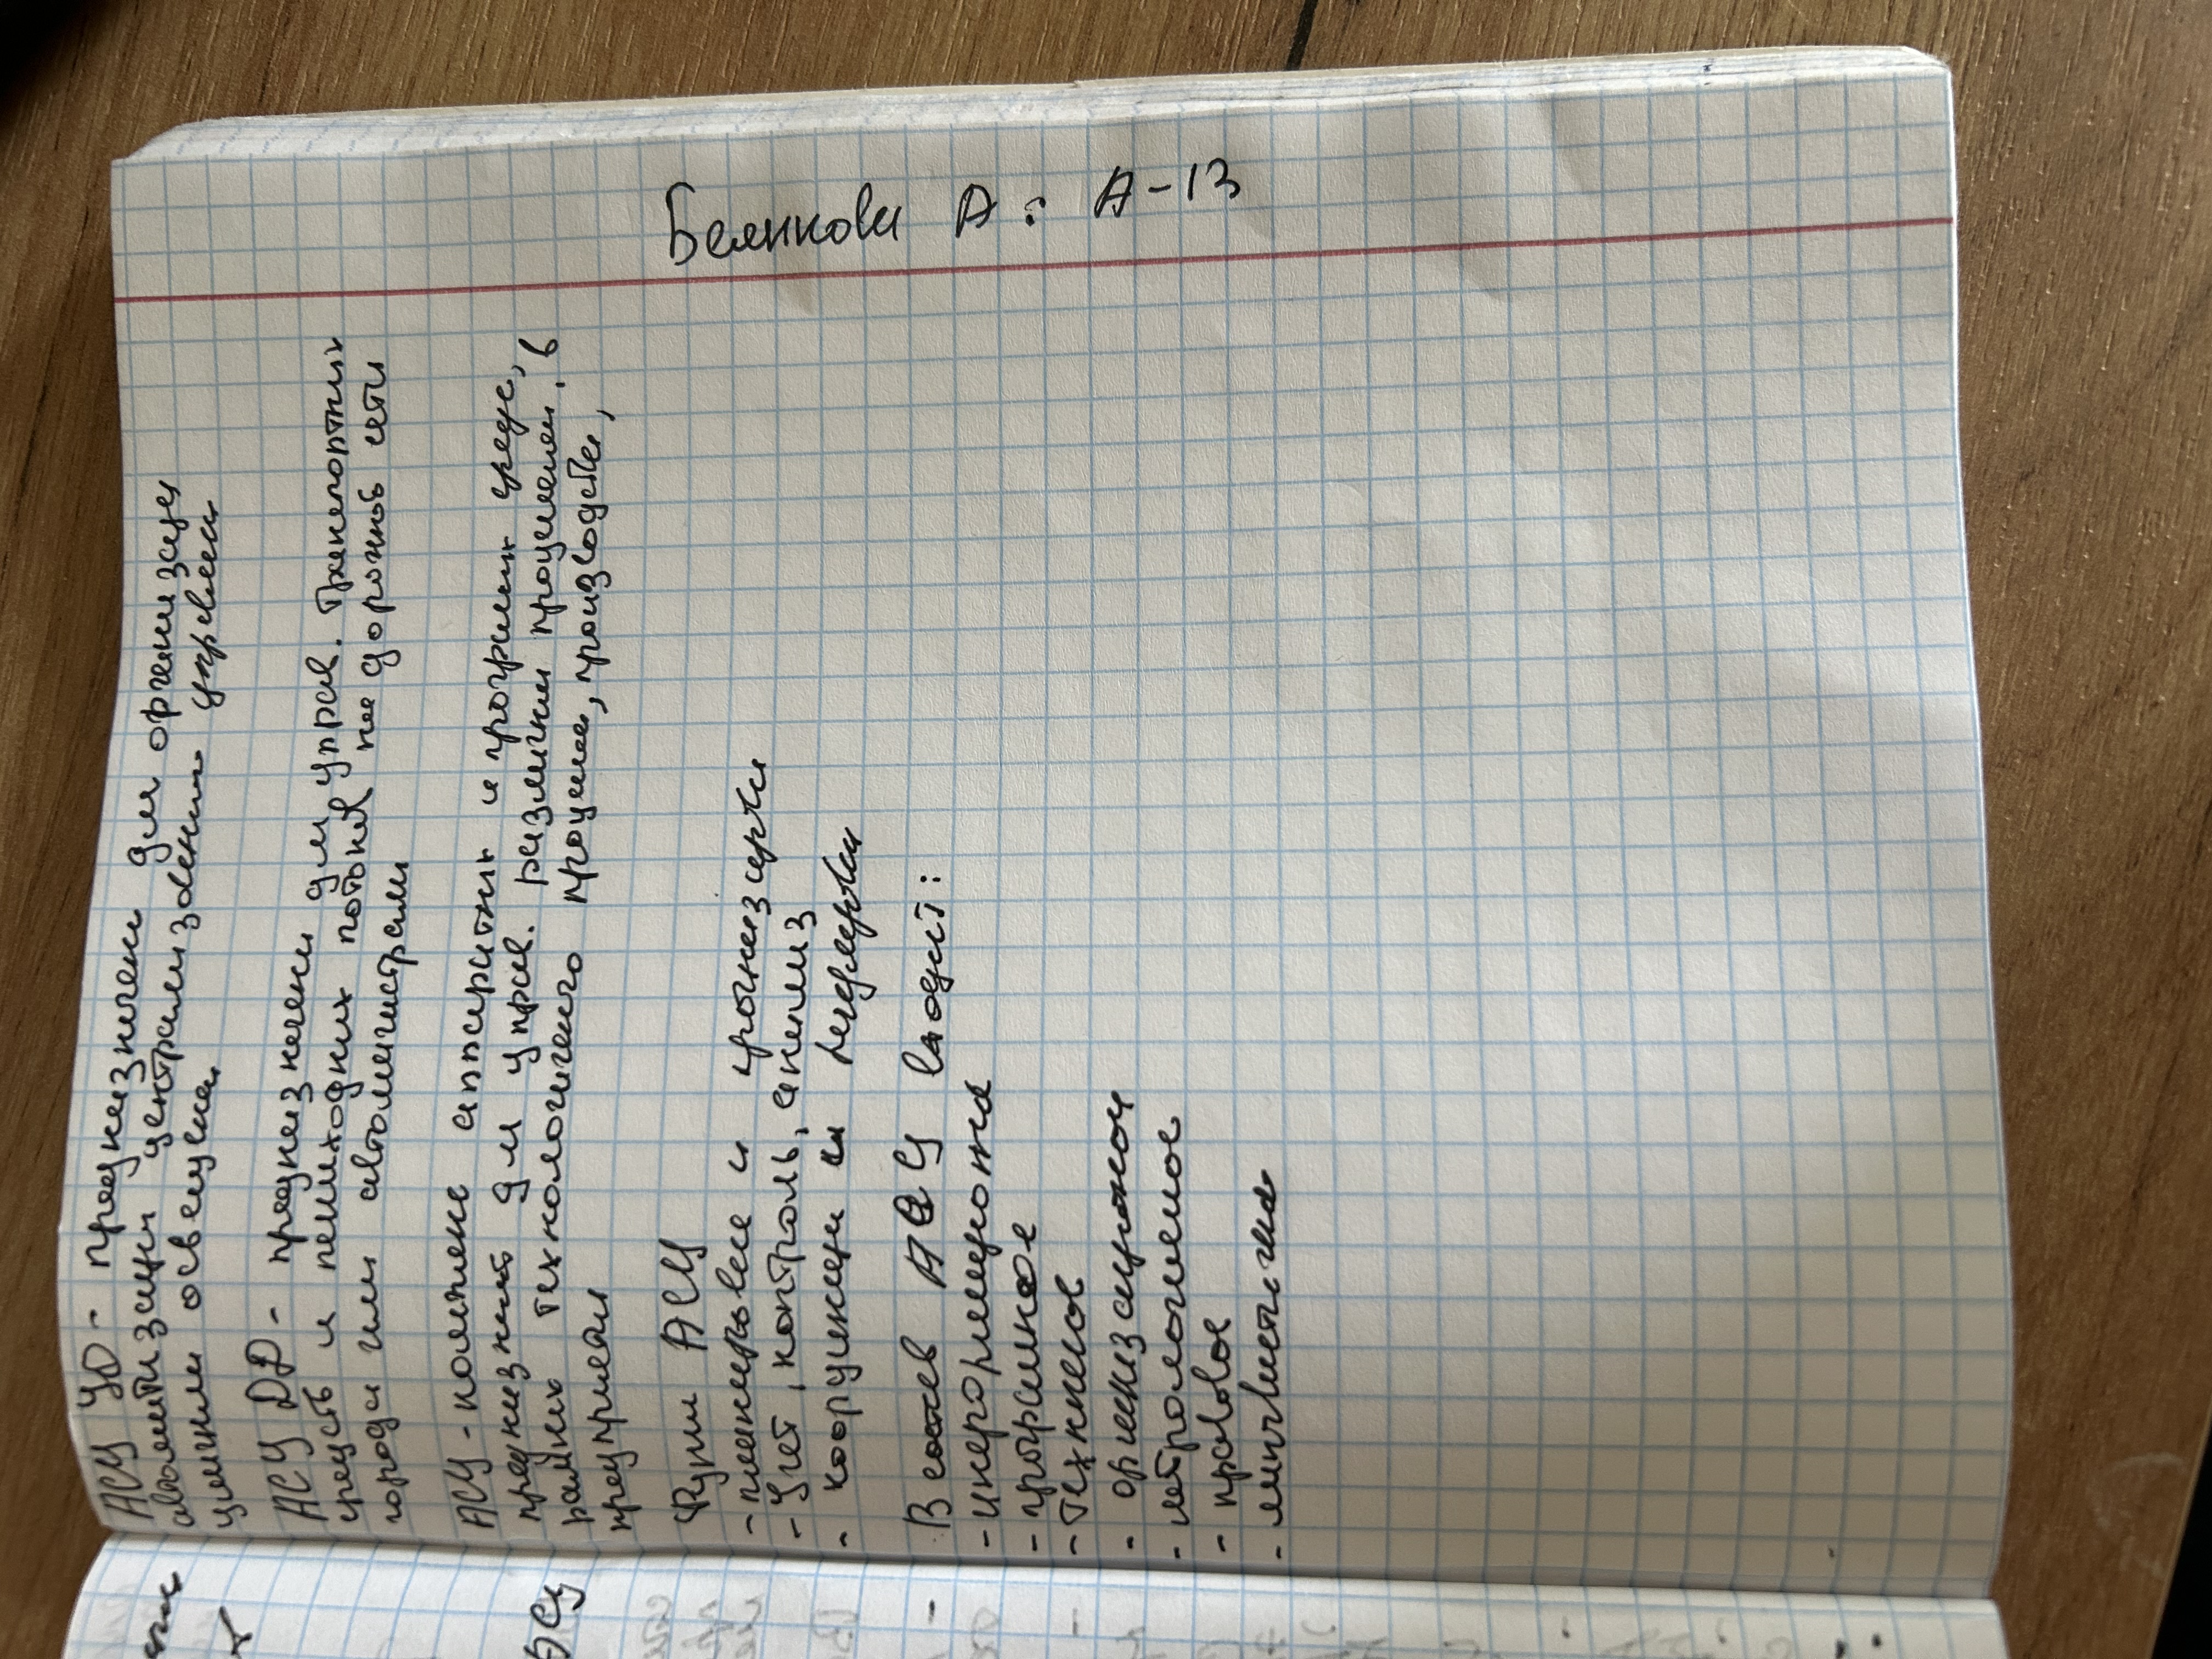 АСУ УО - предназначена для организации
автоматизации централизованни управлеси
уличным освещуна.
АСУ ДД - предназначены для управ. Транспортных
средств и пешеходних потоков на дорожной сети
города или автомагистрали
АСУ - комплекс аппаратных и програмных средс,
предназнач для управ. различным процессам, в
рамках технологичного процесса, производства,
предприяти
Функц АСУ
- планировае и прогнозирова
- Учет, контроль, анализ
- координаци и регулирова
В состав АСУ входит:
- информационна
- програмное
- Техническ
- организационое
- метрологичное
- правовое
- лингвистична
Беликова А: А-13
АСУ